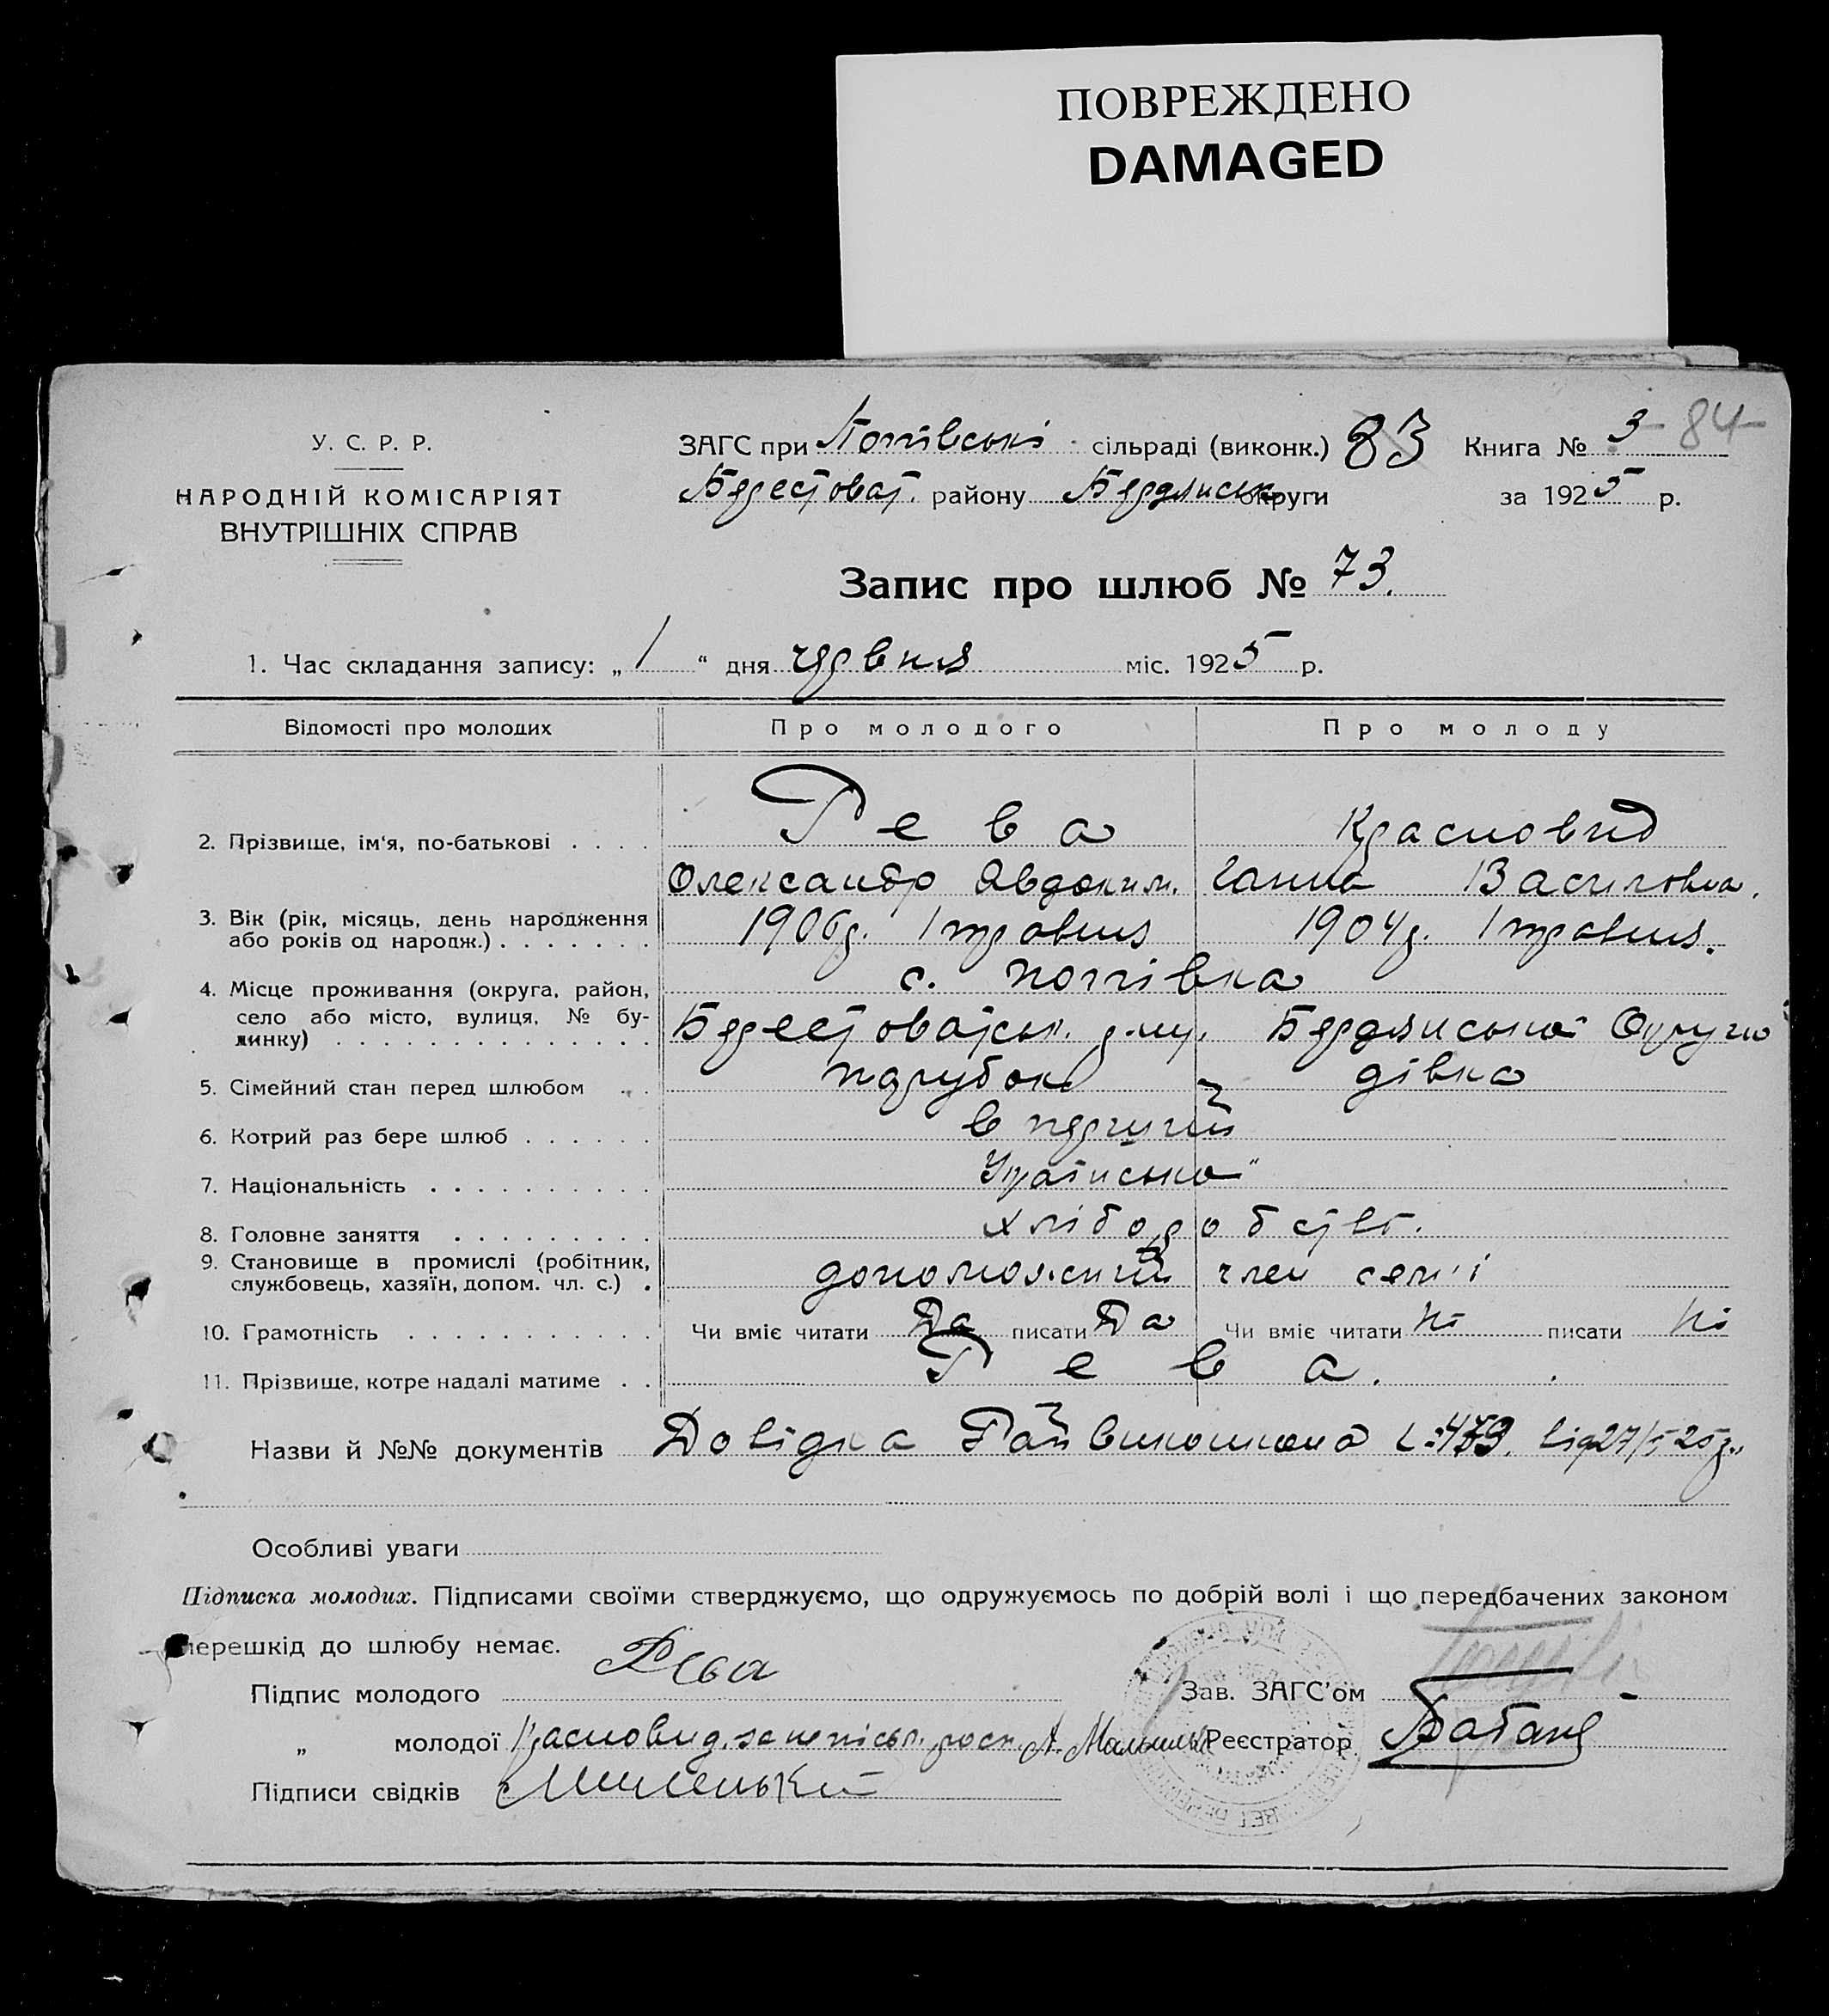 ПОВРЕЖДЕНО
DAMAGED
У. С. Р. Р.
НАРОДНІЙ КОМІСАРІЯТ
ВНУТРІШНІХ СПРАВ
ЗАГС при сільраді (виконк.) 83 Книга № 3 84
Берестоват. району Бердянськ округи за 1925 р.
Запис про шлюб № 73.
1. Час складання запису: „ 1 “ дня червня міс. 1925 р.
Відомості про молодих Про молодого Про молоду
2. Прізвище, ім'я, по-батькові . . . . Рева Красновид
Олександр Явдоким. Ганна Василовна.
3. Вік (рік, місяць, день народження
або років од народж.) . . . . . . . 1906р. 1 травня 1904р. 1 травня.
4. Місце проживання (округа, район, с. Попівка
село або місто, вулиця, № бу-
динку) . . . . . . . . . . . . . . Берестоватськ. р-ну, Бердянської Округи
5. Сімейний стан перед шлюбом . . парубок дівка
6. Котрий раз бере шлюб . . . . . . в перший
7. Національність . . . . . . . . . . Українська
8. Головне заняття . . . . . . . . . хліборобств.
9. Становище в промислі (робітник,
службовець, хазяїн, допом. чл. с.) . допоможний член сем'ї
10. Грамотність . . . . . . . . . . . Чи вміє читати Да писати Да Чи вміє читати Ні писати Ні
11. Прізвище, котре надалі матиме . . Рева.
Назви й №№ документів Довідка Райвиконкома від 27/5 25р.
Особливі уваги
Підписка молодих. Підписами своїми стверджуємо, що одружуємось по добрій волі і що передбачених законом
перешкід до шлюбу немає.
Підпис молодого Рева Зав. ЗАГС'ом
„ молодої Красновид, за неписьм. росп. А. Реєстратор
Підписи свідків